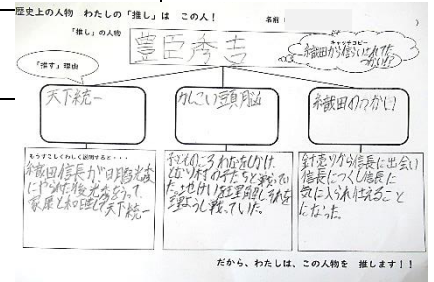 歴史上の人物 わたしの「推し」は この人!
名前(
)
「推し」の人物
豊臣秀吉
キャッチコピー
織田から信らいされてた
つかい!?
「推す」理由
天下統一
かしこい頭脳
織田のつかい!
もうすこしくわしく説明すると・・・
織田信長が明智光秀
にやられた後光秀をうって、
家康と和睦して天下統一
子どものころわなをしかけ
となり村の子たちと戦ってい
た。地けいを理解しそれを
戦っていた。
針売りから信長に出会い
信長につくし信長に
気に入られ仕えること
になった。
だから、わたしは、この人物を 推します!!